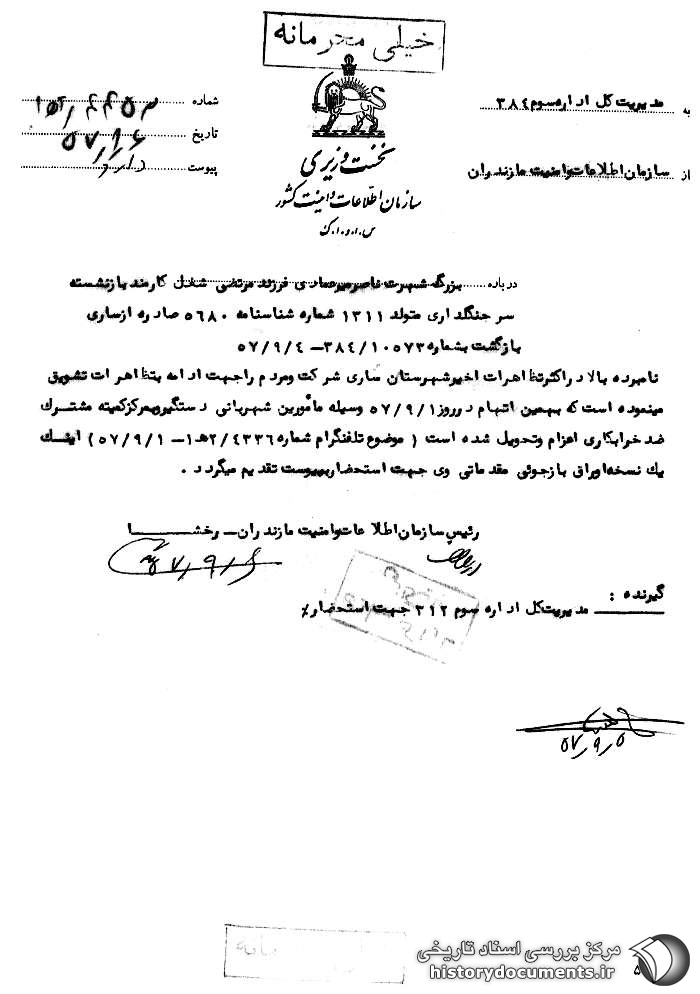 خیلی محرمانه
به مدیریت کل اداره سوم ۳۸۴
از سازمان اطلاعات و امنیت مازندران
نخست وزیری
سازمان اطلاعات و امنیت کشور
س.ا.و.ا.ک
شماره
تاریخ ۵۷/۹/۶
پیوست دارد
درباره بزرگ شهرت ناصر میرعمادی فرزند مرتضی شغل کارمند بازنشسته
سر جنگلداری متولد ۱۳۱۱ شماره شناسنامه ۵۶۸۰ صادره از ساری
بازگشت بشماره ۳۸۴/۱۰۵۷۳ – ۵۷/۹/۴
نامبرده بالا در اکثر تظاهرات اخیر شهرستان ساری شرکت و مردم را جهت ادامه بتظاهرات تشویق
مینموده است که بهمین اتهام در روز ۵۷/۹/۱ وسیله مأمورین شهربانی دستگیر و بمرکز کمیته مشترک
ضد خرابکاری اعزام و تحویل شده است ( موضوع تلفنگرام شماره ۲/۴۳۳۶ه۱ – ۵۷/۹/۱) اینک
یک نسخه اوراق بازجوئی مقدماتی وی جهت استحضار بپیوست تقدیم میگردد .
رئیس سازمان اطلاعات و امنیت مازندران – رخشا
۵۷/۹/۶
گیرنده :
مدیریت کل اداره سوم ۳۱۲ جهت استحضار٪
۵۷/۹/۵
مرکز بررسی اسناد تاریخی
historydocuments.ir